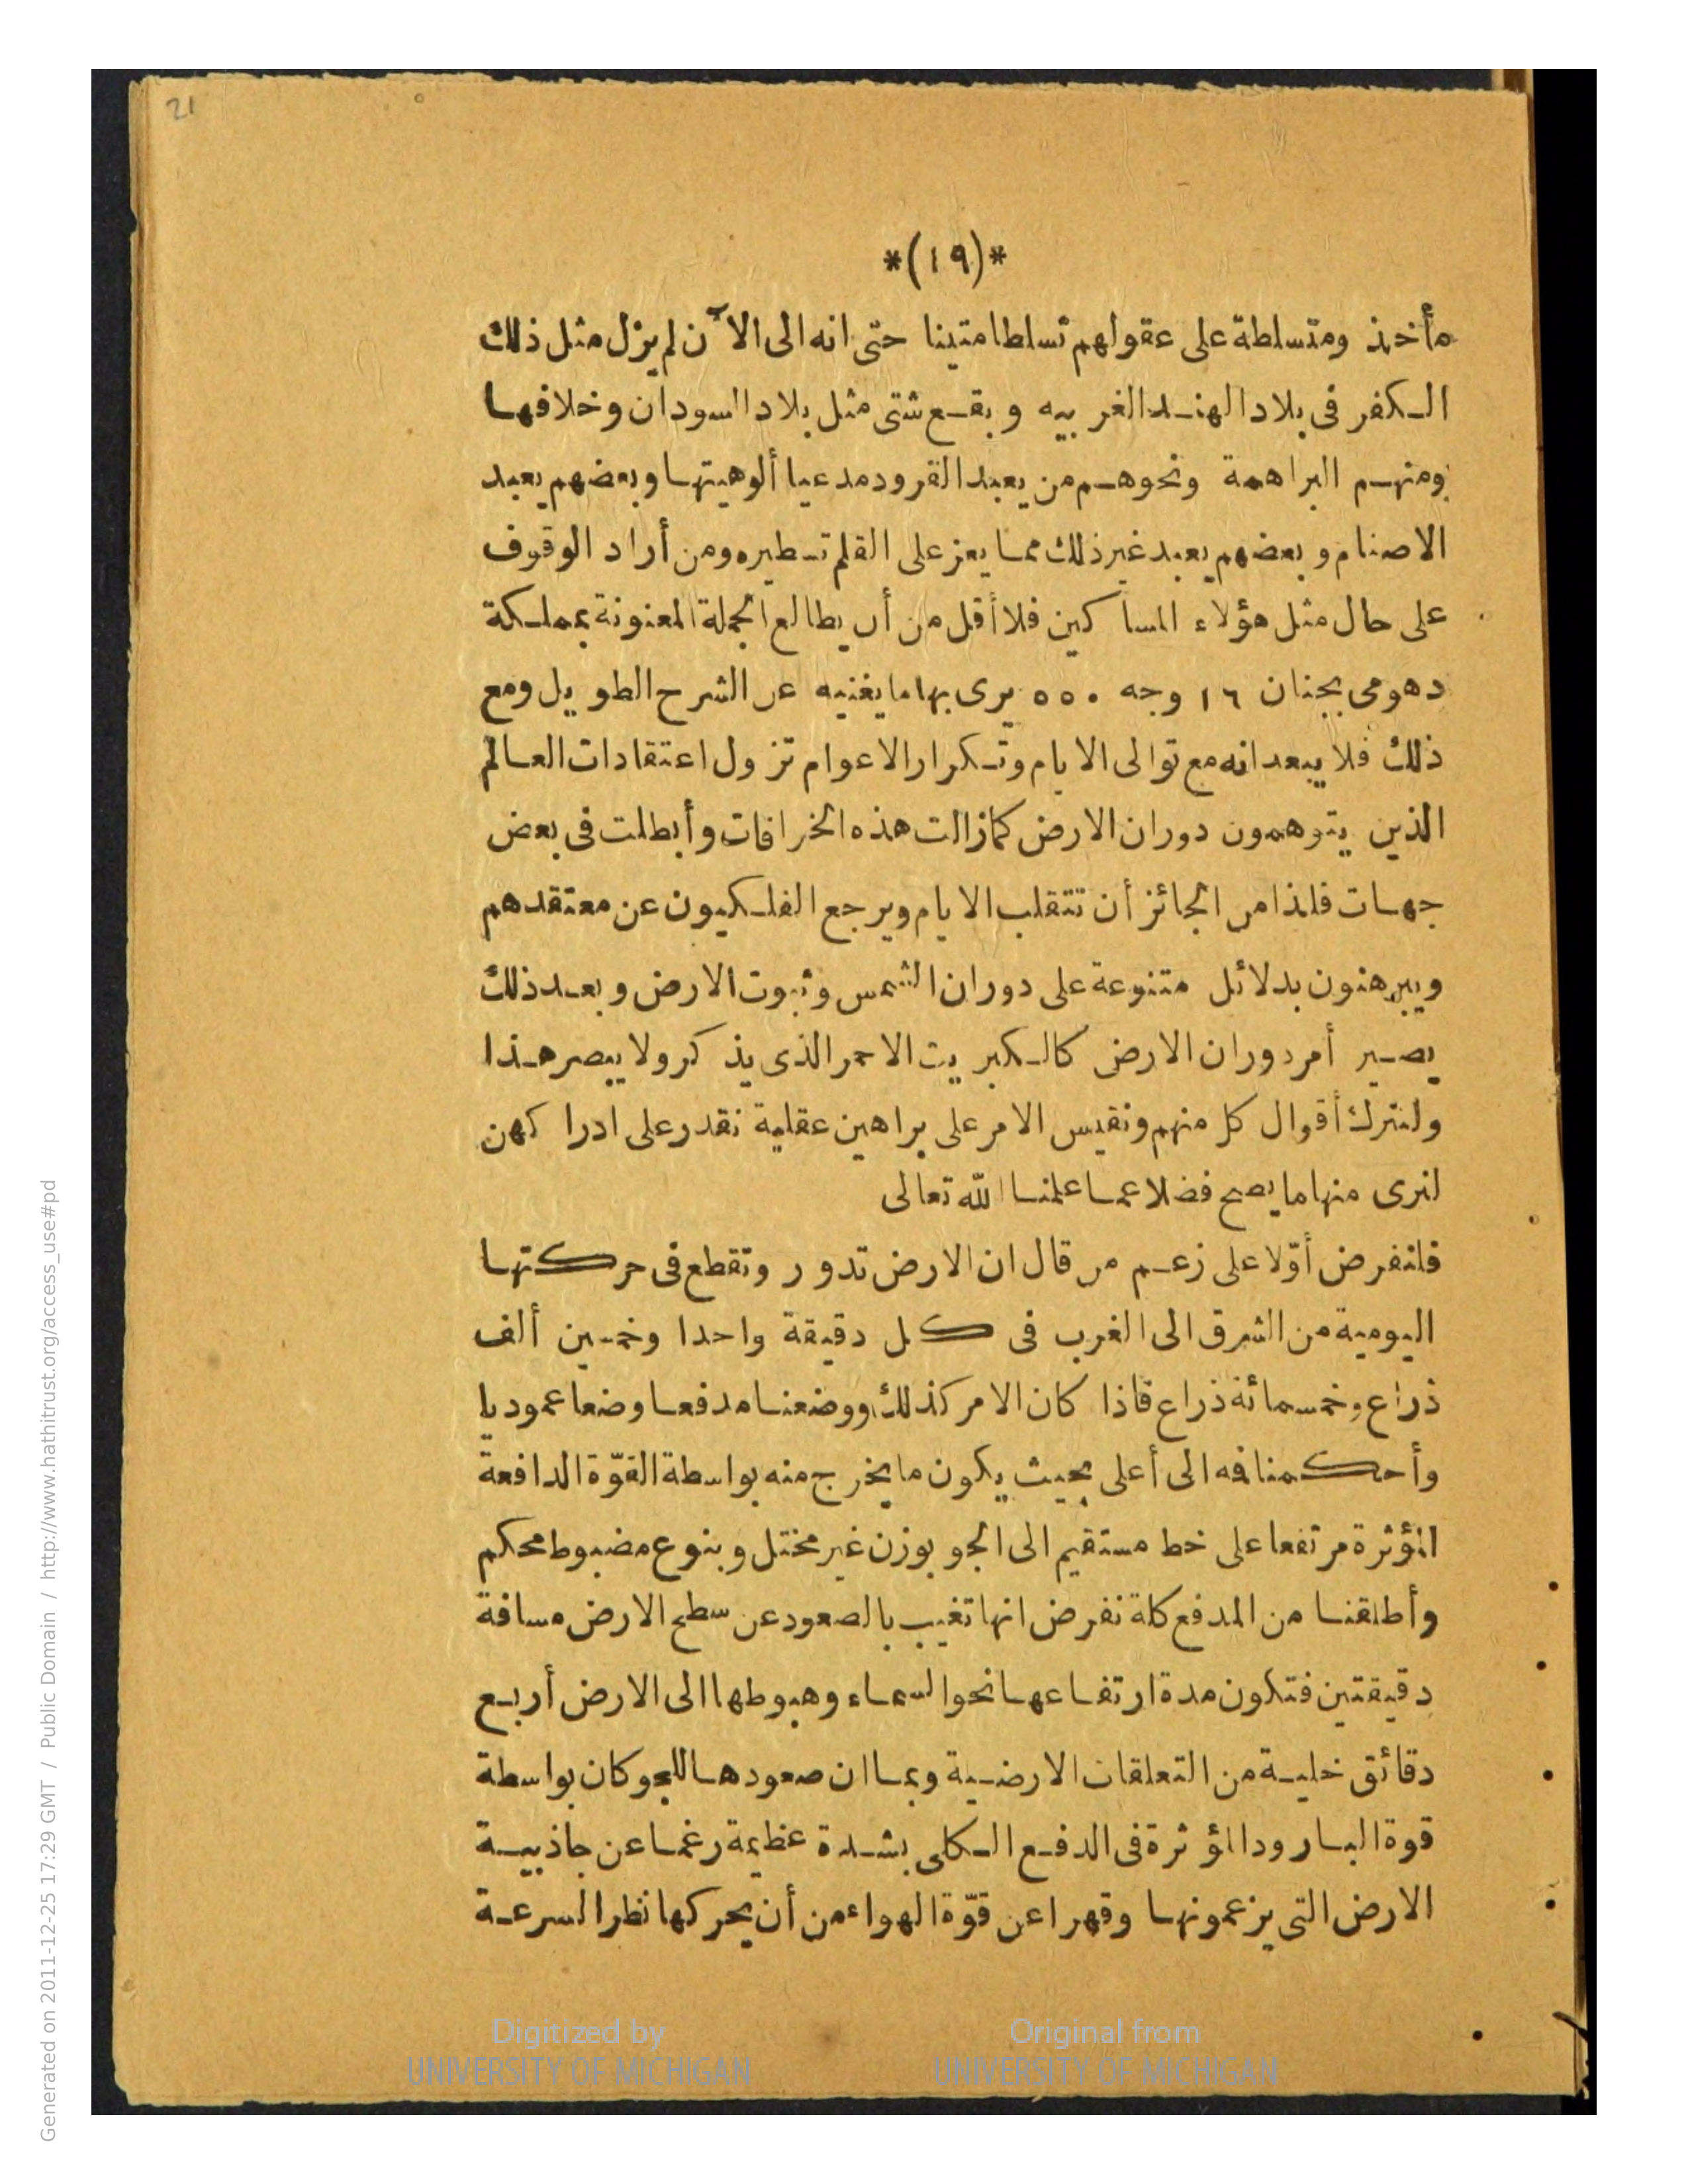 21
*(١٩)*
مأخذ ومتسلطة على عقولهم تسلطا متينا حتى انه الى الآن لم يزل مثل ذلك
الكفر فى بلاد الهند الغربيه وبقع شتى مثل بلاد السودان وخلافها
ومنهم البراهمة ونحوهم من يعبد القرود مدعيا ألوهيتها وبعضهم يعبد
الاصنام وبعضهم يعبد غير ذلك مما يعز على القلم تسطيره ومن أراد الوقوف
على حال مثل هؤلاء المساكين فلا أقل من أن يطالع الجملة المعنونة بمملكة
دهومى بجنان ١٦ وجه ٥٥٠ يرى بها ما يغنيه عن الشرح الطويل ومع
ذلك فلا يبعد انه مع توالى الايام وتكرار الاعوام تزول اعتقادات العالم
الذين يتوهمون دوران الارض كما زالت هذه الخرافات وأبطلت فى بعض
جهات فلذا من الجائز أن تتقلب الايام ويرجع الفلكيون عن معتقدهم
ويبرهنون بدلائل متنوعة على دوران الشمس وثبوت الارض وبعد ذلك
يصير أمر دوران الارض كالكبريت الاحمر الذى يذكر ولا يبصر هذا
ولنترك أقوال كل منهم ونقيس الامر على براهين عقلية نقدر على ادراكهن
لنرى منها ما يصح فضلا عما علمنا الله تعالى
فلنفرض أوّلا على زعم من قال ان الارض تدور وتقطع فى حركتها
اليومية من الشرق الى الغرب فى كل دقيقة واحدا وخمسين ألف
ذراع وخمسمائة ذراع فاذا كان الامر كذلك ووضعنا مدفعا وضعا عموديا
وأحكمنا فه الى أعلى بحيث يكون ما يخرج منه بواسطة القوّة الدافعة
المؤثرة مرتفعا على خط مستقيم الى الجو بوزن غير مختل وبنوع مضبوط محكم
وأطلقنا من المدفع كلة نفرض انها تغيب بالصعود عن سطح الارض مسافة
دقيقتين فتكون مدة ارتفاعها نحو السماء وهبوطها الى الارض أربع
دقائق خلية من التعلقات الارضية وبما ان صعودها للجو كان بواسطة
قوة البارود المؤثرة فى الدفع الكلى بشدة عظيمة رغما عن جاذبية
الارض التى يزعمونها وقهرا عن قوّة الهواء من أن يحركها نظرا لسرعة
Digitized by
UNIVERSITY OF MICHIGAN
Original from
UNIVERSITY OF MICHIGAN
Generated on 2011-12-25 17:29 GMT / Public Domain / http://www.hathitrust.org/access_use#pd